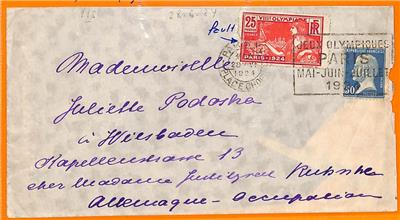 Poult
25
VIIIe OLYMPIADE
RF
PARIS-1924
1924
PLACE CHOPIN
JEUX OLYMPIQUES
PARIS
MAI-JUIN-JUILLET
19
50c
Mademoiselle
Juliette Podoska
à Wiesbaden
Kapellenstrasse 13
chez Madame
Allemagne - occupation